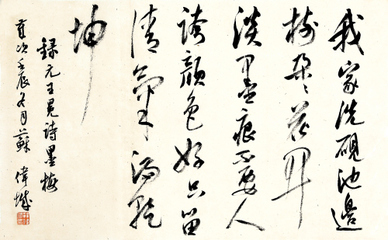 我家洗硯池邊
樹朵〻花開
淡墨痕不要人
誇顏色好只留
清氣滿乾
坤
錄元王冕詩墨梅
歲次壬辰冬月蘇偉城